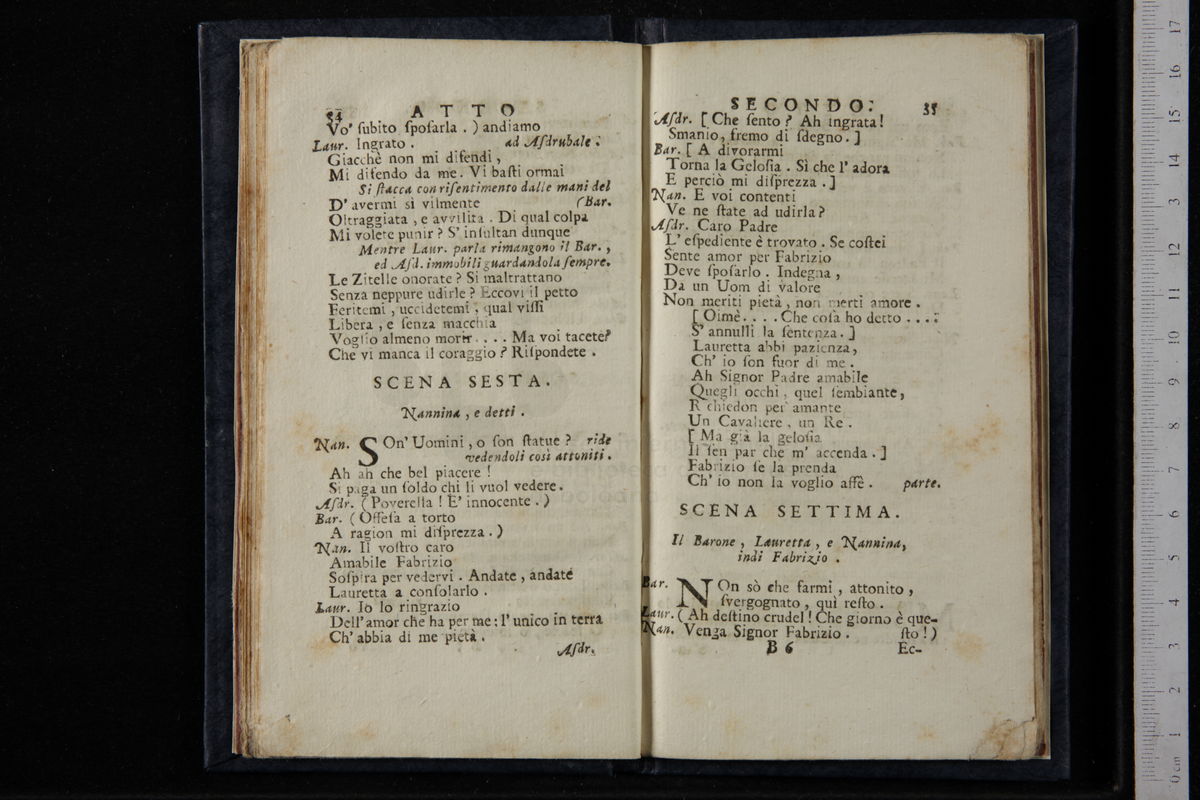 34 ATTO
Vo' ſubito ſpoſarla . ) andiamo
Laur. Ingrato . ad Aſdrubale .
Giacchè non mi difendi ,
Mi difendo da me. Vi baſti ormai
Si ſtacca con riſentimento dalle mani del
D' avermi sì vilmente (Bar.
Oltraggiata , e avvilita . Di qual colpa
Mi volete punir ? S' inſultan dunque
Mentre Laur. parla rimangono il Bar. ,
ed Aſd. immobili guardandola ſempre.
Le Zitelle onorate ? Si maltrattano
Senza neppure udirle ? Eccovi il petto
Feritemi , uccidetemi ; qual viſſi
Libera , e ſenza macchia
Voglio almeno morir . . . . Ma voi tacete?
Che vi manca il coraggio ? Riſpondete .
SCENA SESTA.
Nannina , e detti .
Nan. SOn' Uomini, o ſon ſtatue ? ride
vedendoli così attoniti .
Ah ah che bel piacere !
Si paga un ſoldo chi li vuol vedere .
Aſdr. ( Poverella ! E' innocente . )
Bar. ( Offeſa a torto
A ragion mi diſprezza . )
Nan. Il voſtro caro
Amabile Fabrizio
Soſpira per vedervi . Andate , andate
Lauretta a conſolarlo .
Laur. Io lo ringrazio
Dell' amor che ha per me : l' unico in terra
Ch' abbia di me pietà .
Aſdr.
SECONDO. 35
Aſdr. [ Che ſento ? Ah ingrata !
Smanio, fremo di ſdegno . ]
Bar. [ A divorarmi
Torna la Geloſia . Sì che l' adora
E perciò mi diſprezza . ]
Nan. E voi contenti
Ve ne ſtate ad udirla ?
Aſdr. Caro Padre
L' eſpediente è trovato . Se coſtei
Sente amor per Fabrizio
Deve ſpoſarlo . Indegna ,
Da un Uom di valore
Non meriti pietà , non merti amore .
[ Oimè . . . . Che coſa ho detto . . . .
S' annulli la ſentenza . ]
Lauretta abbi pazienza,
Ch' io ſon fuor di me .
Ah Signor Padre amabile
Quegli occhi , quel ſembiante,
Richiedon per amante
Un Cavaliere , un Re .
[ Ma già la geloſia
Il ſen par che m' accenda . ]
Fabrizio ſe la prenda
Ch' io non la voglio affè . parte.
SCENA SETTIMA.
Il Barone , Lauretta , e Nannina,
indi Fabrizio .
Bar. NOn sò che farmi , attonito ,
ſvergognato , quì reſto .
Laur. ( Ah deſtino crudel ! Che giorno è que-
Nan. Venga Signor Fabrizio . ſto ! )
B 6 Ec-